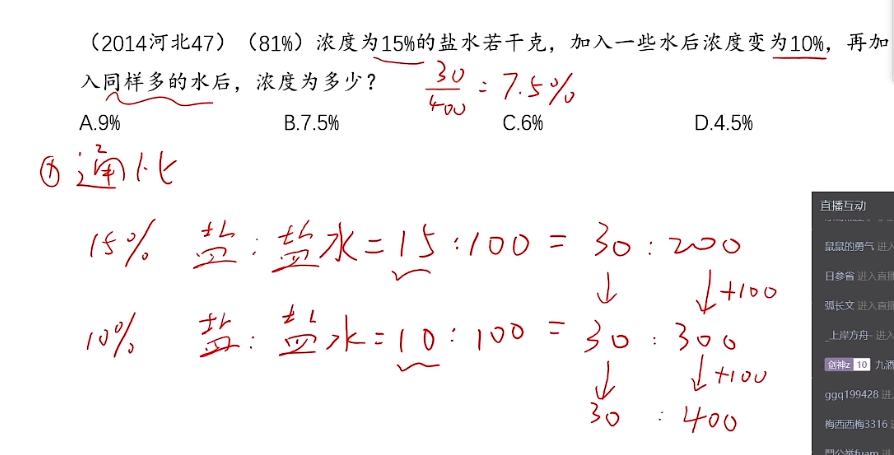 （2014河北47）（81%）浓度为15%的盐水若干克，加入一些水后浓度变为10%，再加
入同样多的水后，浓度为多少？
30/400 = 7.5%
A.9% B.7.5% C.6% D.4.5%
① 通比
15% 盐：盐水=15:100 = 30:200
↓ ↓+100
10% 盐：盐水=10:100 = 30:300
↓ ↓+100
30 : 400
直播互动
鼠鼠的勇气 进入
日参省 进入直播
弧长文 进入直播
_上岸方舟- 进入
剑神z 10 九酒
ggq199428 进
梅西西梅3316